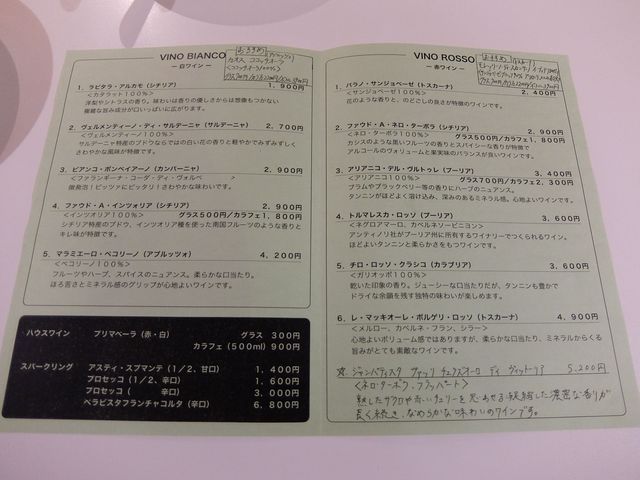 VINO BIANCO
― 白ワイン ―
おすすめ
1. ラピタラ・アルカモ(シチリア) 1,900円
<カタラット100%>
洋梨やシトラスの香り。味わいは香りの優しさからは想像もつかない
複雑な旨み成分が口いっぱいに広がります。
2. ヴェルメンティーノ・ディ・サルデーニャ(サルデーニャ) 2,700円
<ヴェルメンティーノ100%>
サルデーニャ特産のブドウならではの白い花の香りと軽やかでみずみずしく
さわやかな風味が特徴です。
3. ビアンコ・ポンペイアーノ(カンパーニャ) 2,900円
<ファランギーナ・コーダ・ディ・ヴォルペ >
微発泡!ピッツァにピッタリ!さわやかな味わいです。
4. ファウド・A・インツォリア(シチリア) 2,900円
<インツオリア100%> グラス500円/カラフェ1,800円
シチリア特産のブドウ、インツオリア種を使った南国フルーツのような香りと
キレ味が特徴です。
5. マラミエーロ・ペコリーノ(アブルッツォ) 4,200円
<ペコリーノ100%>
フルーツやハーブ、スパイスのニュアンス。柔らかな口当たり。
ほろ苦さとミネラル感のグリップが心地よいワインです。
ハウスワイン プリマベーラ(赤・白) グラス 300円
カラフェ(500ml) 900円
スパークリング アスティ・スプマンテ(1/2、甘口) 1,400円
プロセッコ(1/2、辛口) 1,600円
プロセッコ( 辛口) 3,000円
ベラビスタフランチャコルタ(辛口) 6,800円
VINO ROSSO
― 赤ワイン ―
おすすめ
1. パラノ・サンジョベーゼ(トスカーナ) 2,400円
<サンジョベーゼ100%>
花のような香りと、のどごしの良さが特徴のワインです。
2. ファウド・A・ネロ・ターボラ(シチリア) 2,900円
<ネロ・ターボラ100%> グラス500円/カラフェ1,800円
カシスのような黒いフルーツの香りとスパイシーな香りが特徴で
アルコールのヴォリュームと果実味のバランスが良いワインです。
3. アリアニコ・デル・ヴルトゥレ(プーリア) 3,400円
<アリアニコ100%> グラス700円/カラフェ2,300円
プラムやブラックベリー等の香りにハーブのニュアンス。
タンニンがほどよく溶け込み、深みのあるミネラル感。心地よいワインです。
4. トルマレスカ・ロッソ(プーリア) 3,600円
<ネグロアマーロ、カベルネソービニヨン>
アンティノリ社がプーリア州に所有するワイナリーでつくられるワイン。
ほどよいタンニンと柔らかさをもつワインです。
5. チロ・ロッソ・クラシコ(カラブリア) 3,600円
<ガリオッポ100%>
乾いた印象の香り。ジューシーな口当たりだが、タンニンも豊かで
ドライな余韻を残す独特の味わいが楽しめます。
6. レ・マッキオーレ・ボルゲリ・ロッソ(トスカーナ) 4,900円
<メルロー、カベルネ・フラン、シラー>
心地よいボリューム感ではありますが、柔らかな口当たり、ミネラルからくる
旨みがとても素敵なワインです。
☆ ジャンバティスタ ヴァッリ チェラスオーロ ディ ヴィットーリア 5,200円
<ネロ・ターボラ、フラッパート>
熟したザクロや赤いチェリーを思わせる凝縮した濃密な香りが
長く続き、なめらかな味わいのワインです。